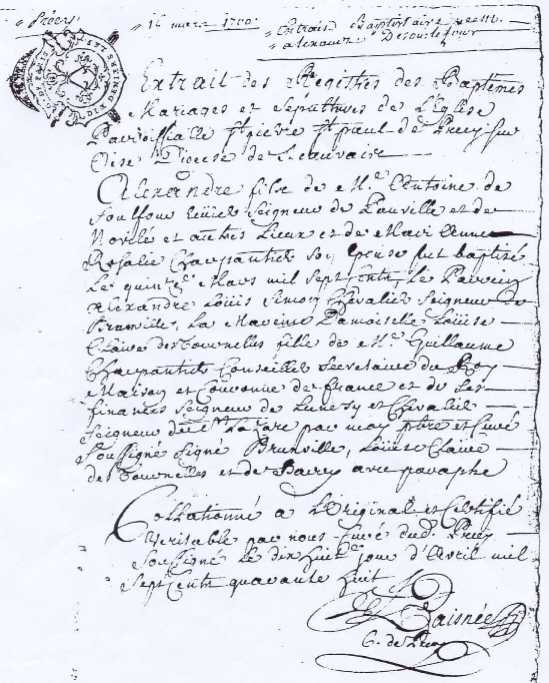 16 mars 1700.
Extrait Baptistaire
Extrait des Registres des Baptêmes
Mariages et Sepultures de L'Eglise
Parroissialle St pierre St paul de Precy sur
Oise Diocese de Beauvaire
Alexandre fils de Mr. Antoine de
Seigneur de et de
et autres Lieux et de Marie Anne
Rosalie Charpentier son Epouse fut baptisé
Le quinze Mars mil Sept Cents, Le Parein
Alexandre Loüis Simon Chevalier Seigneur de
Brunville, La Mareine Damoiselle Loüise
Claire des Tournelles fille de Mr. Guillaume
Charpentier Conseiller Secretaire du Roy
Maison et Couronne de france et de Ses
finances Seigneur de et Chevalier
Seigneur de St Lazare par moy ptre et Curé
Soussigné Signé Brunville, Loüise Claire
des Tournelles et de Barry avec paraphe
Collationné a L'Original et Certifié
Veritable par nous Curé dud. Precy
Soussigné Le dix huite. jour d'Avril mil
Sept Cents quarante huit
Baisnée
C. de Precy